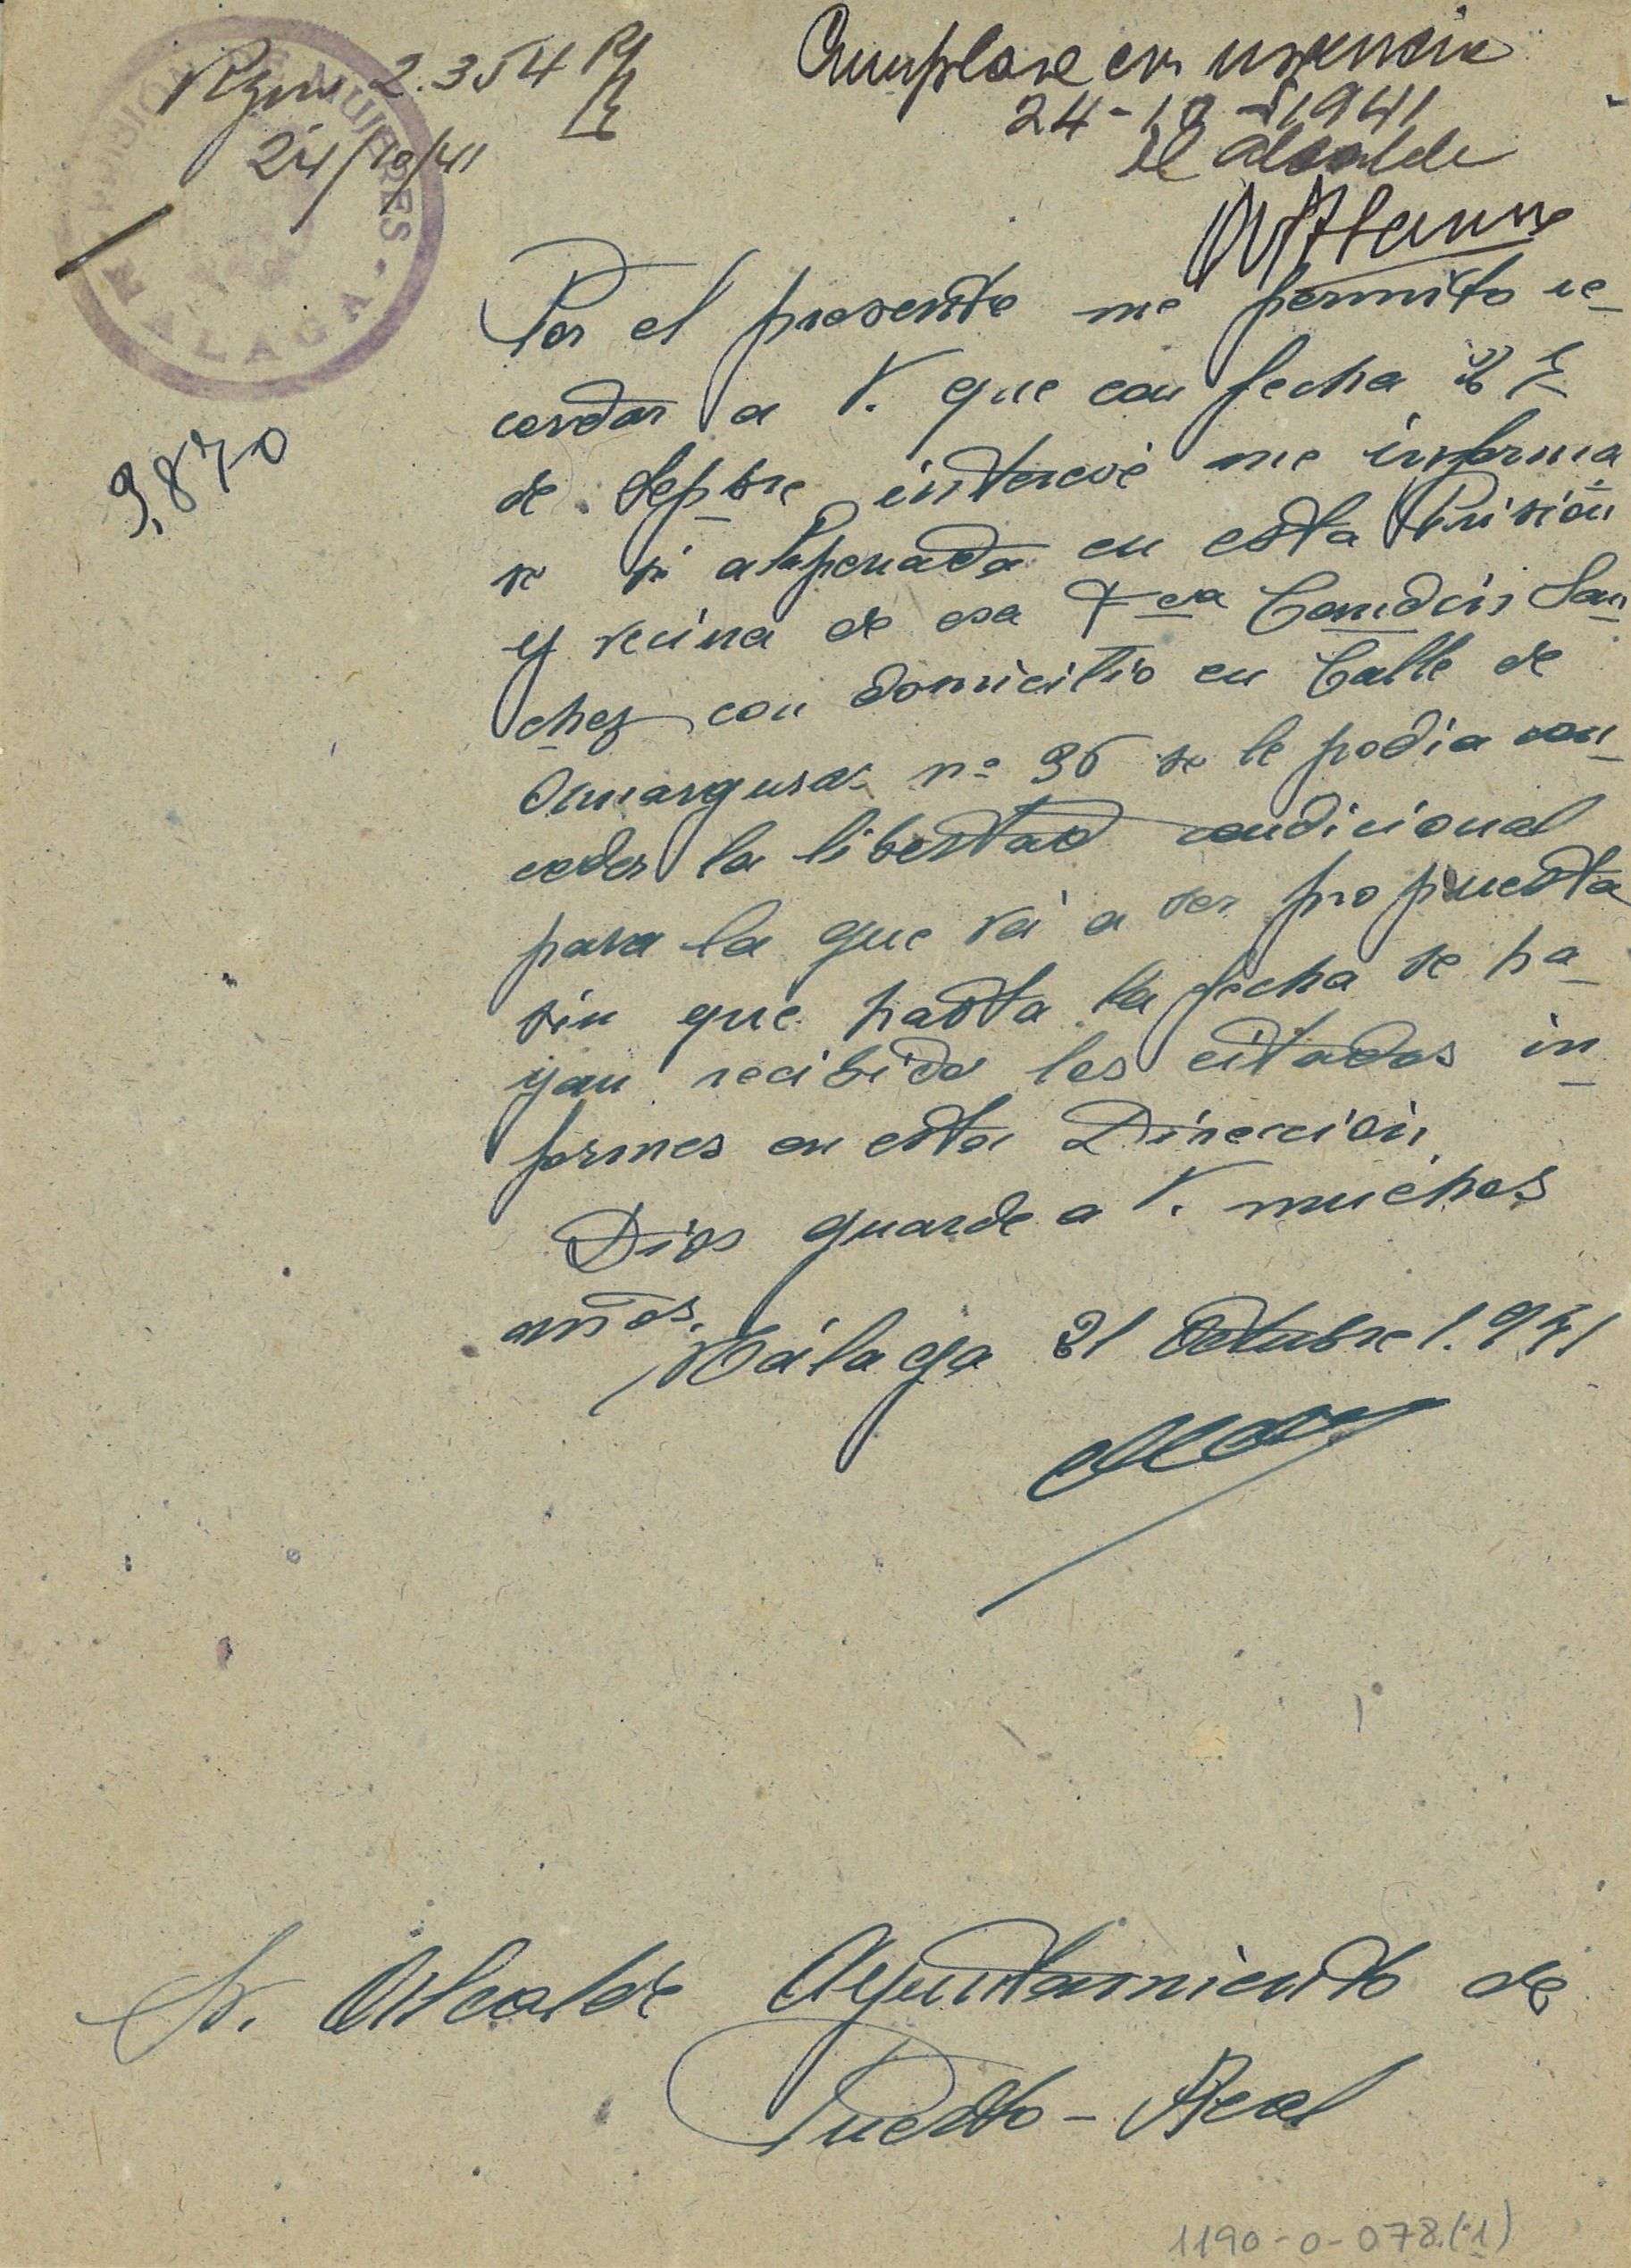 PRISION DE MUJERES
MALAGA
2.354
24/10/41
Cumplase con urgencia
24-10-1941
El Alcalde
9,870
Por el presente me permito re-
cordar a V. que con fecha
de Sepbre interesé me informa
se si a la penada en esta Prisión
y vecina de esa Fca Sán
chez con domicilio en Calle de
Amargura nº 36 se le podia con-
ceder la libertad condicional
para la que vá a ser propuesta
sin que hasta la fecha se ha-
yan recibido los citados in-
formes en esta Dirección
Dios guarde a V. muchos
años.
Málaga 21 Octubre 1.941
Sr. Alcalde Ayuntamiento de
Puerto-Real
1190-0-078.(1)